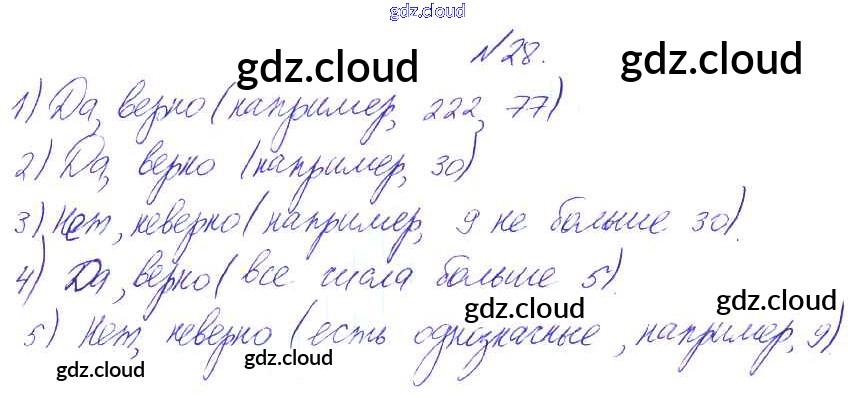 gdz.cloud
№28.
gdz.cloud gdz.cloud
1) Да, верно (например, 222, 77)
2) Да, верно (например, 30)
3) Нет, неверно (например, 9 не больше 30).
4) Да, верно (все числа больше 5).
gdz.cloud gdz.cloud
5) Нет, неверно (есть однозначные, например, 9)
gdz.cloud gdz.cloud